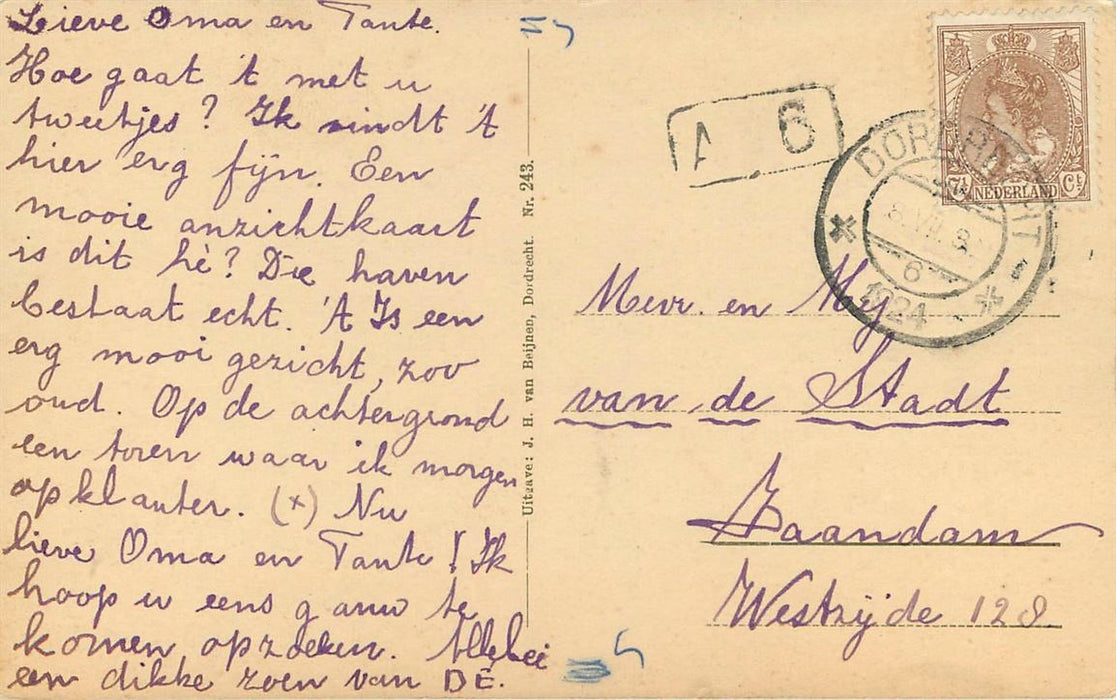 Lieve Oma en Tante.
Hoe gaat 't met u
tweetjes? Ik vindt 't
hier erg fijn. Een
mooie anzichtkaart
is dit hè? Die haven
bestaat echt. 't Is een
erg mooi gezicht, zoo
oud. Op de achtergrond
een toren waar ik morgen
opklauter. (x) Nu
lieve Oma en Tante! Ik
hoop u eens gauw te
komen opzoeken. Allebei
een dikke zoen van DÉ.
Uitgave: J. H. van Beijnen, Dordrecht. Nr. 243.
A 6
7½ NEDERLAND Ct
DORDRECHT
6
1924
Mevr. en Mej
van de Stadt
Zaandam
Westzijde 128